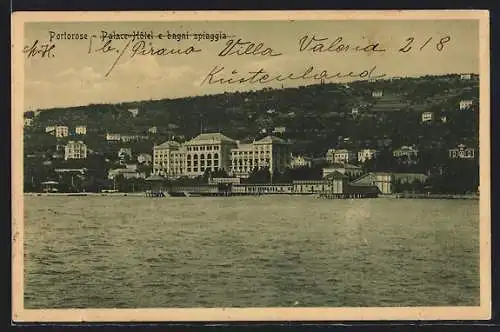 Portorose - Palace Hôtel e bagni spiaggia
b./Pirano Villa Valoria 218
Küstenland